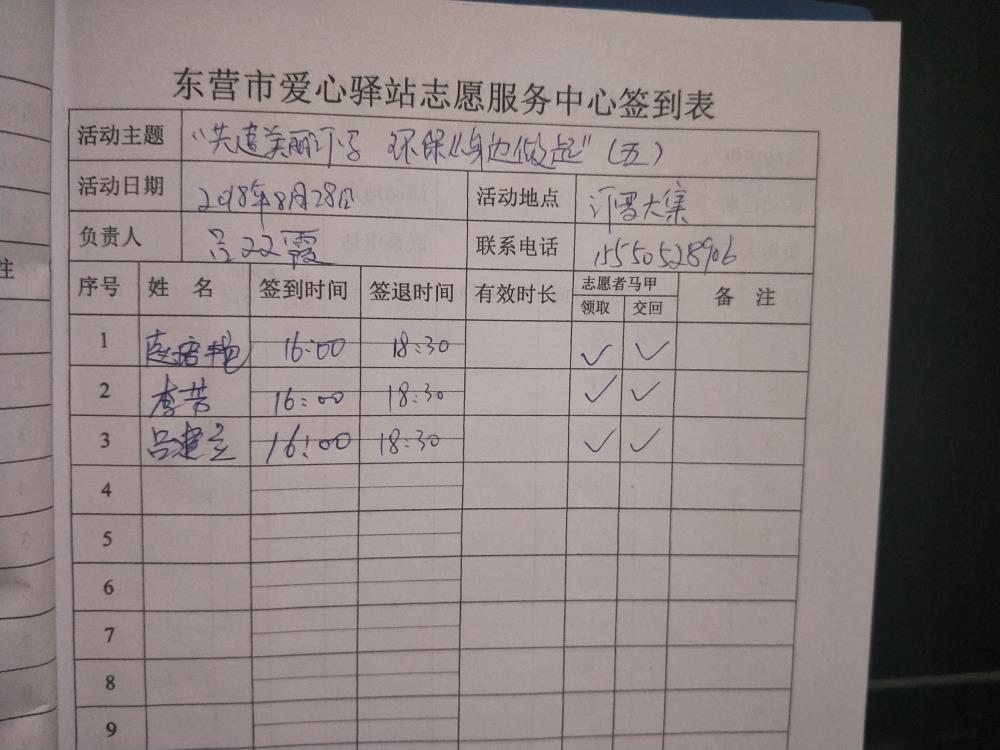 东营市爱心驿站志愿服务中心签到表
活动主题 "共建美丽 环保从身边做起"(五)
活动日期 2018年8月28日 活动地点 大集
负责人 吕双霞 联系电话 15550528906
序号 姓 名 签到时间 签退时间 有效时长 志愿者马甲 备 注
领取 交回
1 16:00 18:30 ✓ ✓
2 李芳 16:00 18:30 ✓ ✓
3 吕建立 16:00 18:30 ✓ ✓
4
5
6
7
8
9
注